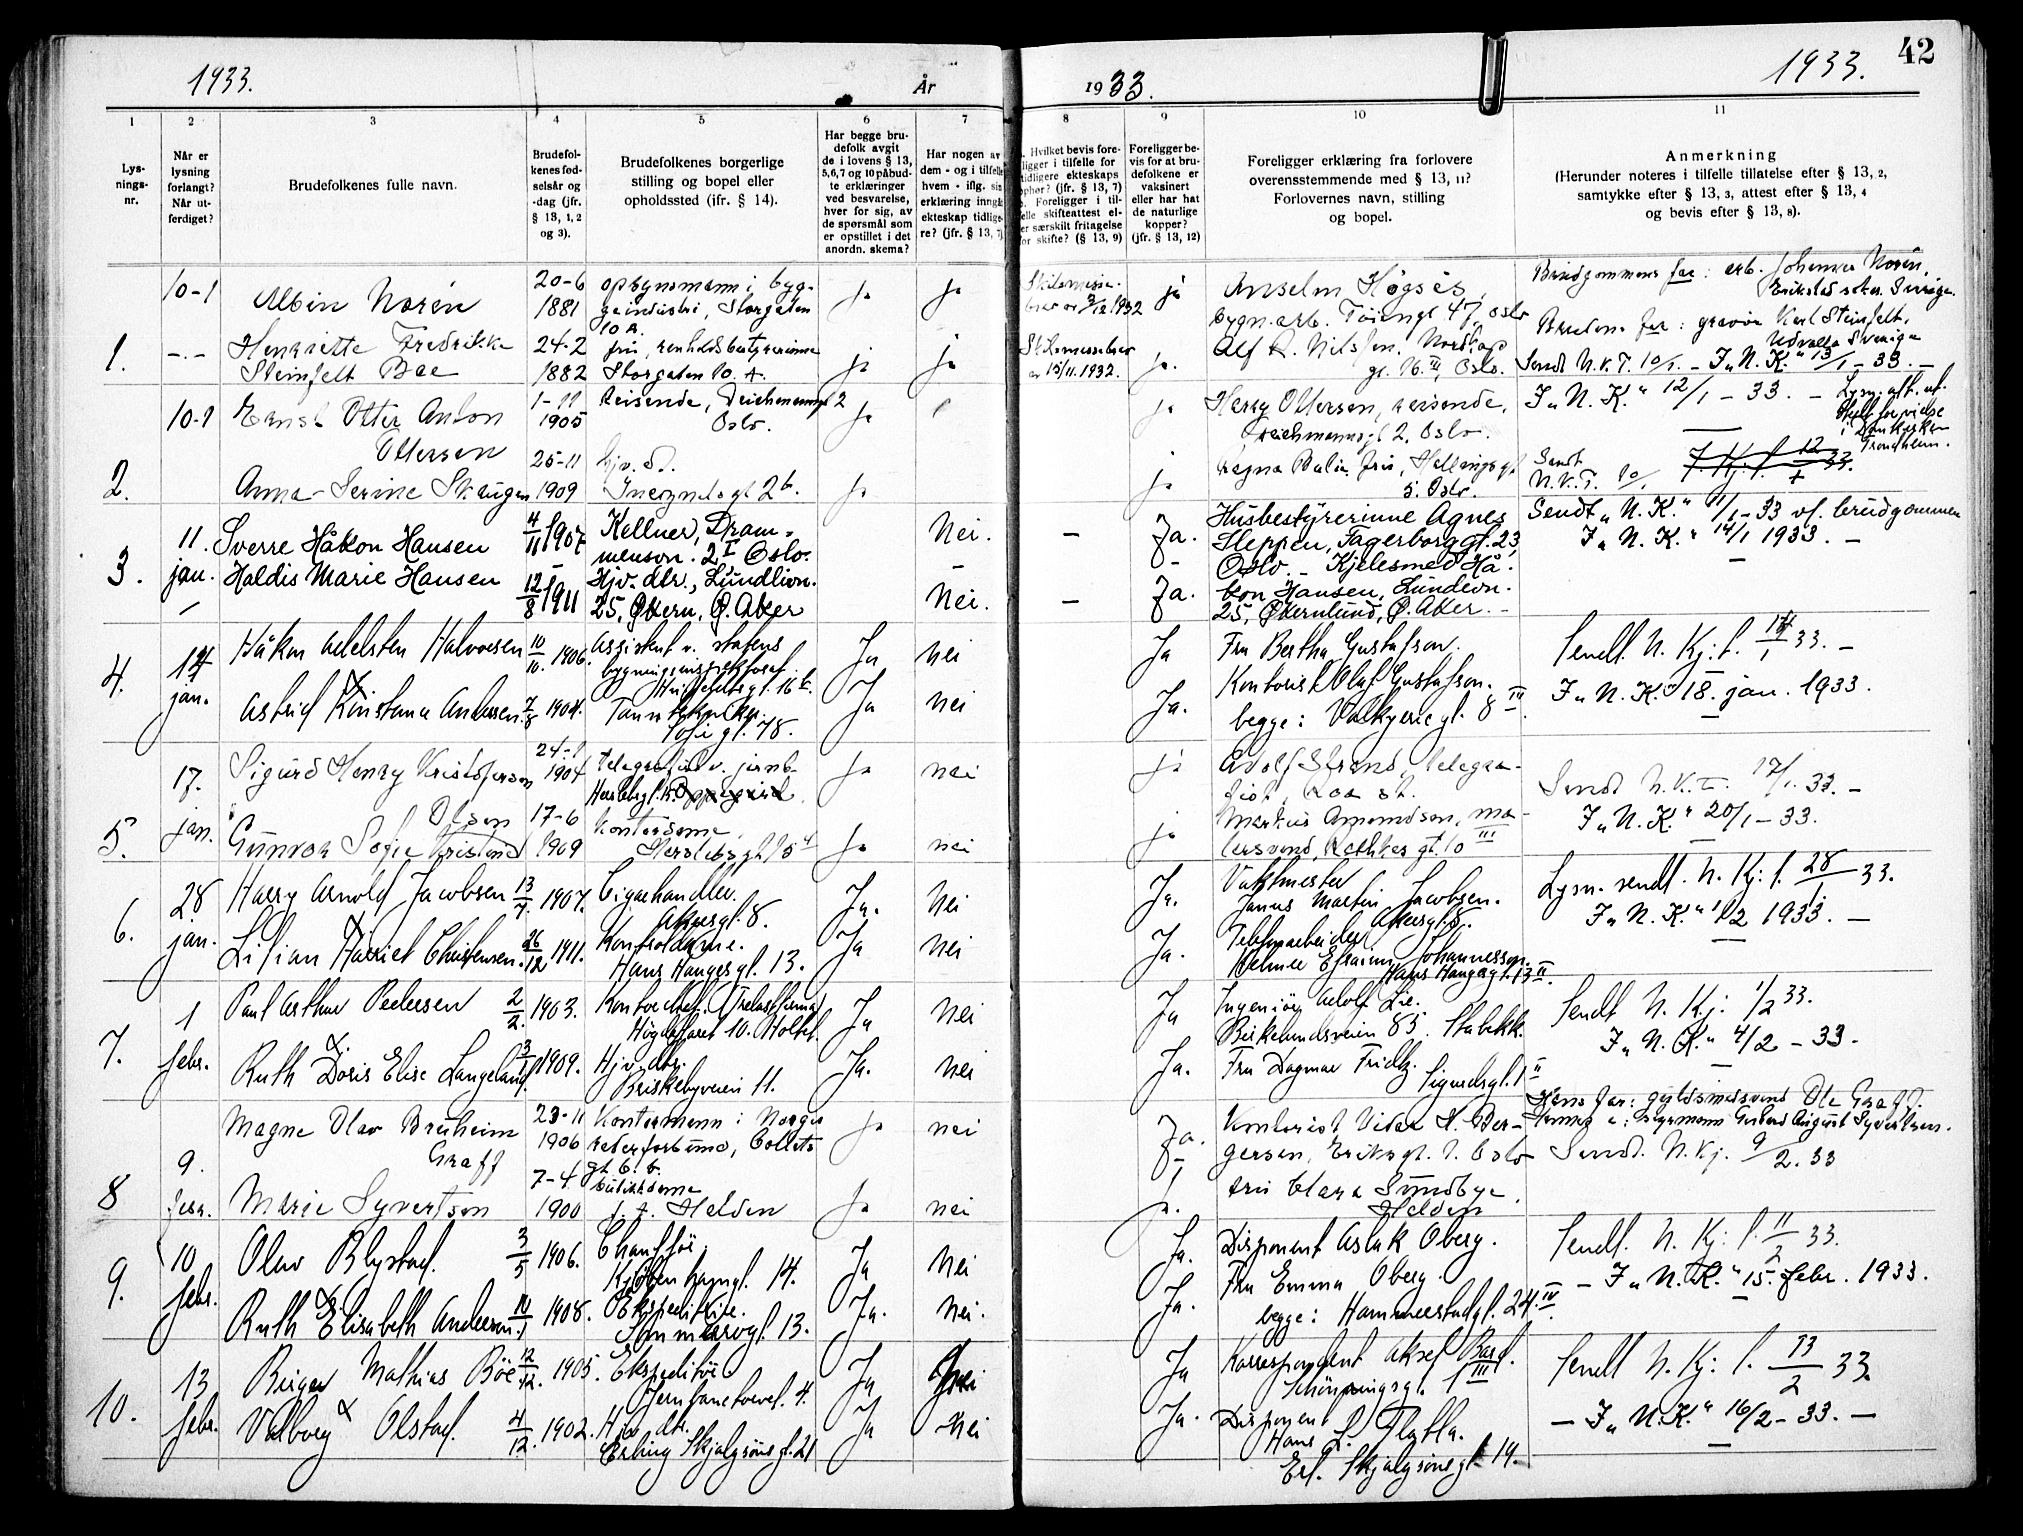 1933.
År
1933.
1933.
42
1
2
3
4
5
6
7
8
9
10
11
Lys-
nings-
nr.
Når er
lysning
forlangt?
Når ut-
ferdiget?
Brudefolkenes fulle navn.
Brudefol-
kenes fød-
selsår og
-dag (jfr.
§ 13, 1, 2
og 3).
Brudefolkenes borgerlige
stilling og bopel eller
opholdssted (jfr. § 14).
Har begge bru-
defolk avgit
de i lovens § 13,
5,6,7 og 10 påbud-
te erklæringer
ved besvarelse,
hver for sig, av
de spørsmål som
er opstillet i det
anordn. skema?
Har nogen av
dem - og i tilfelle
hvem - iflg. sin
erklæring inngå
ekteskap tidlige-
re? (jfr. § 13, 7)
Hvilket bevis fore-
ligger i tilfelle for
tidligere ekteskaps
ophør? (jfr. § 13, 7)
Foreligger i til-
felle skifteattest el-
er særskilt fritagelse
for skifte? (§ 13, 9)
Foreligger be-
vis for at bru-
defolkene er
vaksinert
eller har hat
de naturlige
kopper?
(jfr. § 13, 12)
Foreligger erklæring fra forlovere
overensstemmende med § 13, 11?
Forlovernes navn, stilling
og bopel.
Anmerkning
(Herunder noteres i tilfelle tillatelse efter § 13, 2,
samtykke efter § 13, 3, attest efter § 13, 4
og bevis efter § 13, 8).
1.
10-1
Albin Norén
20-6
1881
opsynsmann i byg-
geindustri, Storgaten
10 A.
ja
ja
Skilsmisse-
1932
ja
Anselm Høgsés
bygn.arb. Tøiengt 47, Oslo
Brudgommens far: arb. Johannes Norén,
- . -
Henriette Fredrikke
Steinfelt Boe
24-2
1882
fru, renholdsbestyrerinne
Storgaten 10 A.
ja
ja
Skilsmissebrev
av 15/11.1932.
ja.
Alf R. Nilssen, Nordkap
gt. 16 III, Oslo.
Brudens far: gravør Karl Steinfelt,
Udvalla Sverige
Sendt N.K.T. 10/1. - I „N.K.“ 13/1 - 33. -
2.
10-1
Ernst Otter Anton
Ottersen
1-11
1905
Reisende, Deichmannsgt 2
Oslo.
ja
ja
Harry Ottersen, reisende,
Deichmannsgt 2, Oslo.
I „N.K.“ 12/1 - 33. - Lysn. att. ut.
Trondheim.
Anna-Serine Skaugen
25-11
1909
hjv. d.
2b.
ja
ja
Ragna fru,
5. Oslo.
Sendt
N.K.T. 10/1
3.
11.
jan.
Sverre Håkon Hansen
4/11 1907
Kellner, Dram-
mensvn. 2 I Oslo.
Nei.
-
Ja.
Husbestyrerinne Agnes
Sleppen, Fagerborggt. 23,
Oslo. - Kjelesmed Hå-
Sendt „N.K.“ 11/1 - 33 vf. brudgommen
I „N.K.“ 14/1 1933. -
Haldis Marie Hansen
12/8 1911
Hjv. dtr., Lundlivn.
25, Økern, Ø. Aker
Nei.
-
Ja.
kon Hansen, Lundevn.
25, Økernlund, Ø. Aker. -
4.
14
jan.
Håkon Adelsten Halvorsen
10/10. 1906.
Assistent v. statens
bygningsinspektorat.
Huitfeldtsgt. 16 b.
Ja
Nei
Ja
Fru Bertha Gustafson.
Sendt. N. Kj. t. 14/1 33. -
Astrid Konstanse Andersen.
7/8 1904.
Tanntekniker.
Sofiegt. 78.
Ja
Nei
Ja.
Kontorist Olaf Gustafson.
begge: Valkyriegt. 8 III.
I „N.K.“ 18. jan. 1933.
5.
17.
jan.
Sigurd Henry Kristofersen
Olsen
24-1
1904
Telegrafist v. jernb.
ja
nei
ja
Adolf Strand, telegra-
fist, Roa st.
Sendt N.K.T. 17/1. 33. -
Gunvor Sofie Kristine
17-6
1909
Kontordame
Herslebsgt 15
ja
nei
ja
Markus Amundsen, ma-
lersvend, Rathkes gt. 10 III
I „N.K.“ 20/1 - 33.
6.
28
jan.
Harry Arnold Jacobsen
13/7. 1907.
Cigarhandler.
Akersgt. 8.
Ja.
Nei
Ja.
Vaktmester
Janus Martin Jacobsen.
Akersgt. 8.
Lysn. sendt. N. Kj. t. 28/1 33.
Lilian Harriet Christensen.
26/12 1911.
Kontordame.
Hans Haugesgt. 13.
Ja
Nei
Ja.
Telefonarbeider
Efraim Johannesson.
Hans Haugesgt. 13 II.
I „N.K.“ 1/2 1933. -
7.
1
febr.
Paul Arthur Pedersen
2/2. 1903.
Kontorchef. (Trelastfirma)
Høgdafaret 10. Holtet.
Ja
Nei
Ja
Ingeniør Adolf Lie.
Birkelundsveien 85. Stabekk.
Sendt N. Kj: 1/2 33.
Ruth Doris Elise Langeland.
1909.
Hjv. dtr.
Briskebyveien 11.
Ja.
Nei
Ja.
Fru Dagmar Fridtz.
Sigurdsgt. 1 II
I „N.K.“ 4/2 - 33.
8
9.
febr.
Magne Olav Bruheim
Graff
23-11
1906
Kontormann i Norges
Rederforbund, Colletts
gt. 6 b.
ja
nei
Ja.
Kontorist Vidar H. Ber-
gersen, Eriksgt. 1. Oslo
Hans far: gullsmedsvend Ole Graff.
Sendt. N. Kj. 9/2. 33
Marie Syvertsen
7-4.
1900
butikkdame
f. t. Halden
ja
nei
ja.
Fru Clara Sundbye,
Halden
9.
10
febr.
Olav Blystad.
3/5 1906.
Chauffør.
Kjøbenhavngt. 14.
Ja
Nei
Ja.
Disponent Aslak Oberg.
Sendt. N. Kj: t. 11/2 33.
Ruth Elisabeth Andersen.
10/1 1908.
Ekspeditrise.
Sommerrogt. 13.
Ja.
Nei.
Ja.
Fru Emma Oberg.
begge: Hammerstadgt. 24 IV.
- I „N.K.“ 15. febr. 1933.
10.
13
febr.
Birger Mathias Bøe
12/12. 1905.
Ekspeditør
Jernbanetorvet. 4.
Ja
Nei
Ja
Korrespondent Aksel Bard.
Schönningsgt. 1 III
Sendt N. Kj: t. 13/2 33.
Valborg Olstad.
4/12. 1902.
Hjv. dtr.
Erling Skjalgsønsgt. 21
Ja
Nei
Ja.
Disponent
Hans L. Flatla.
Erl. Skjalgsønsgt. 19.
- I „N.K.“ 16/2 - 33. -